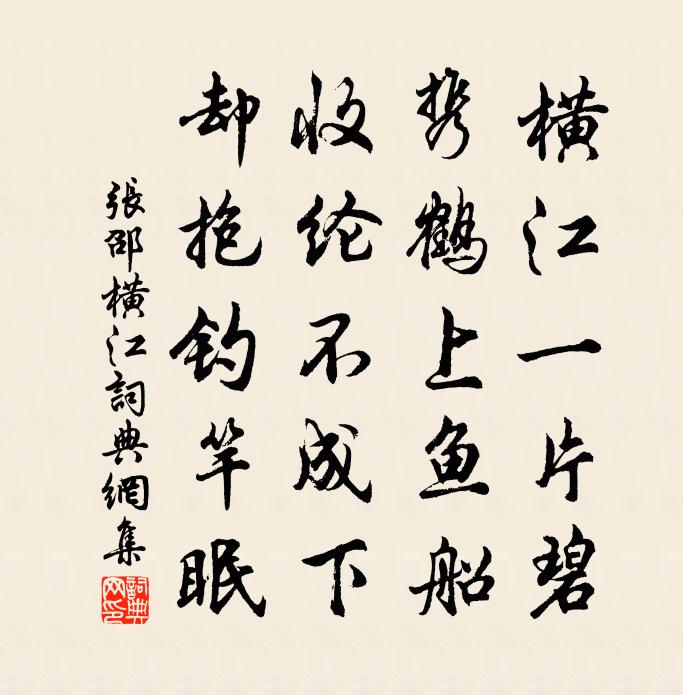 横江一片碧
携鹤上鱼船
收纶不成下
却抱钓竿眠
張邵橫江詞典網集
詞典网印